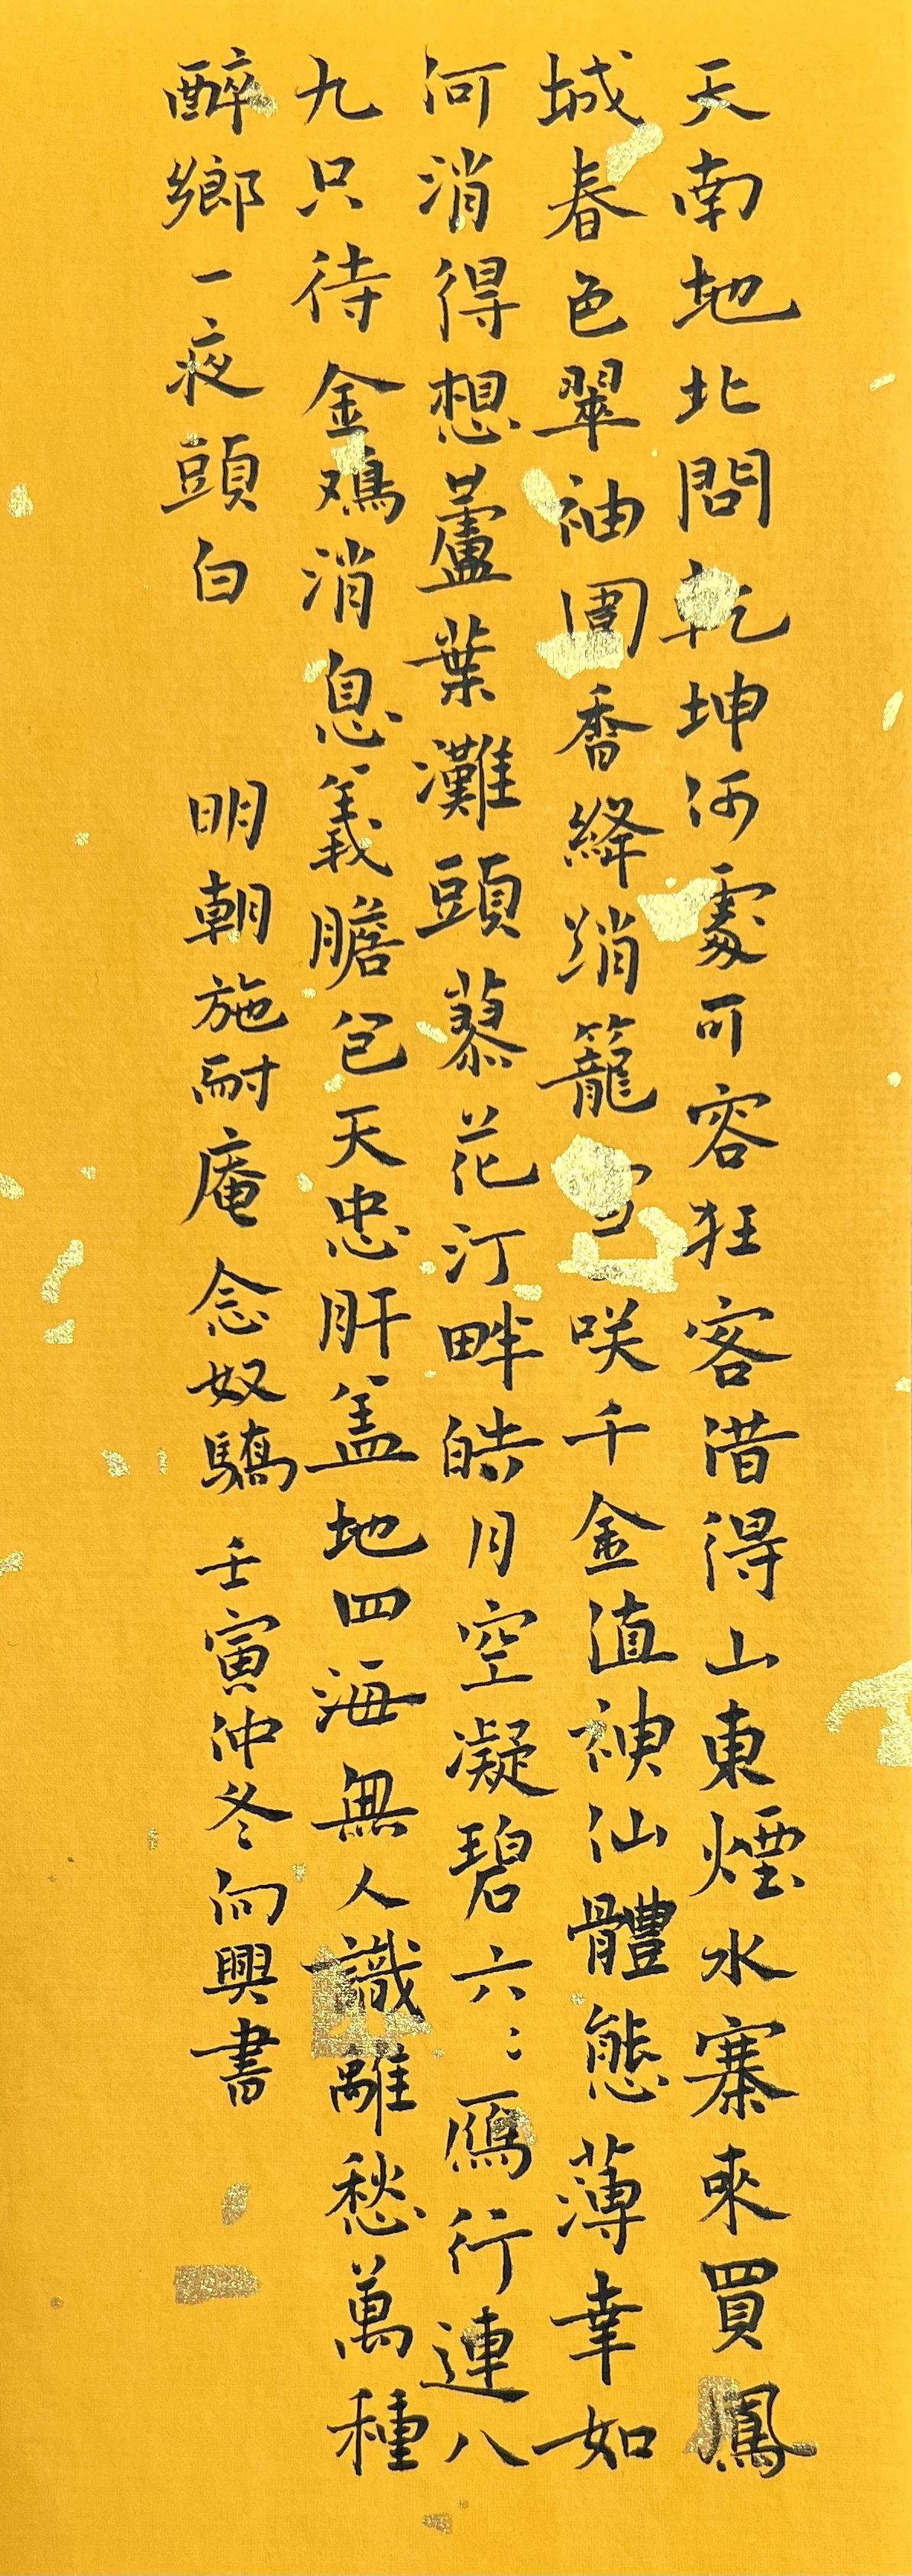 天南地北問乾坤何處可容狂客借得山東煙水寨來買鳳
城春色翠袖圍香絳綃籠雪咲千金值神仙體態薄幸如
何消得想蘆葉灘頭蓼花汀畔皓月空凝碧六〻雁行連八
九只待金鳮消息義膽包天忠肝蓋地四海無人識離愁萬種
醉鄉一夜頭白
明朝施耐庵念奴驕壬寅仲冬向興書